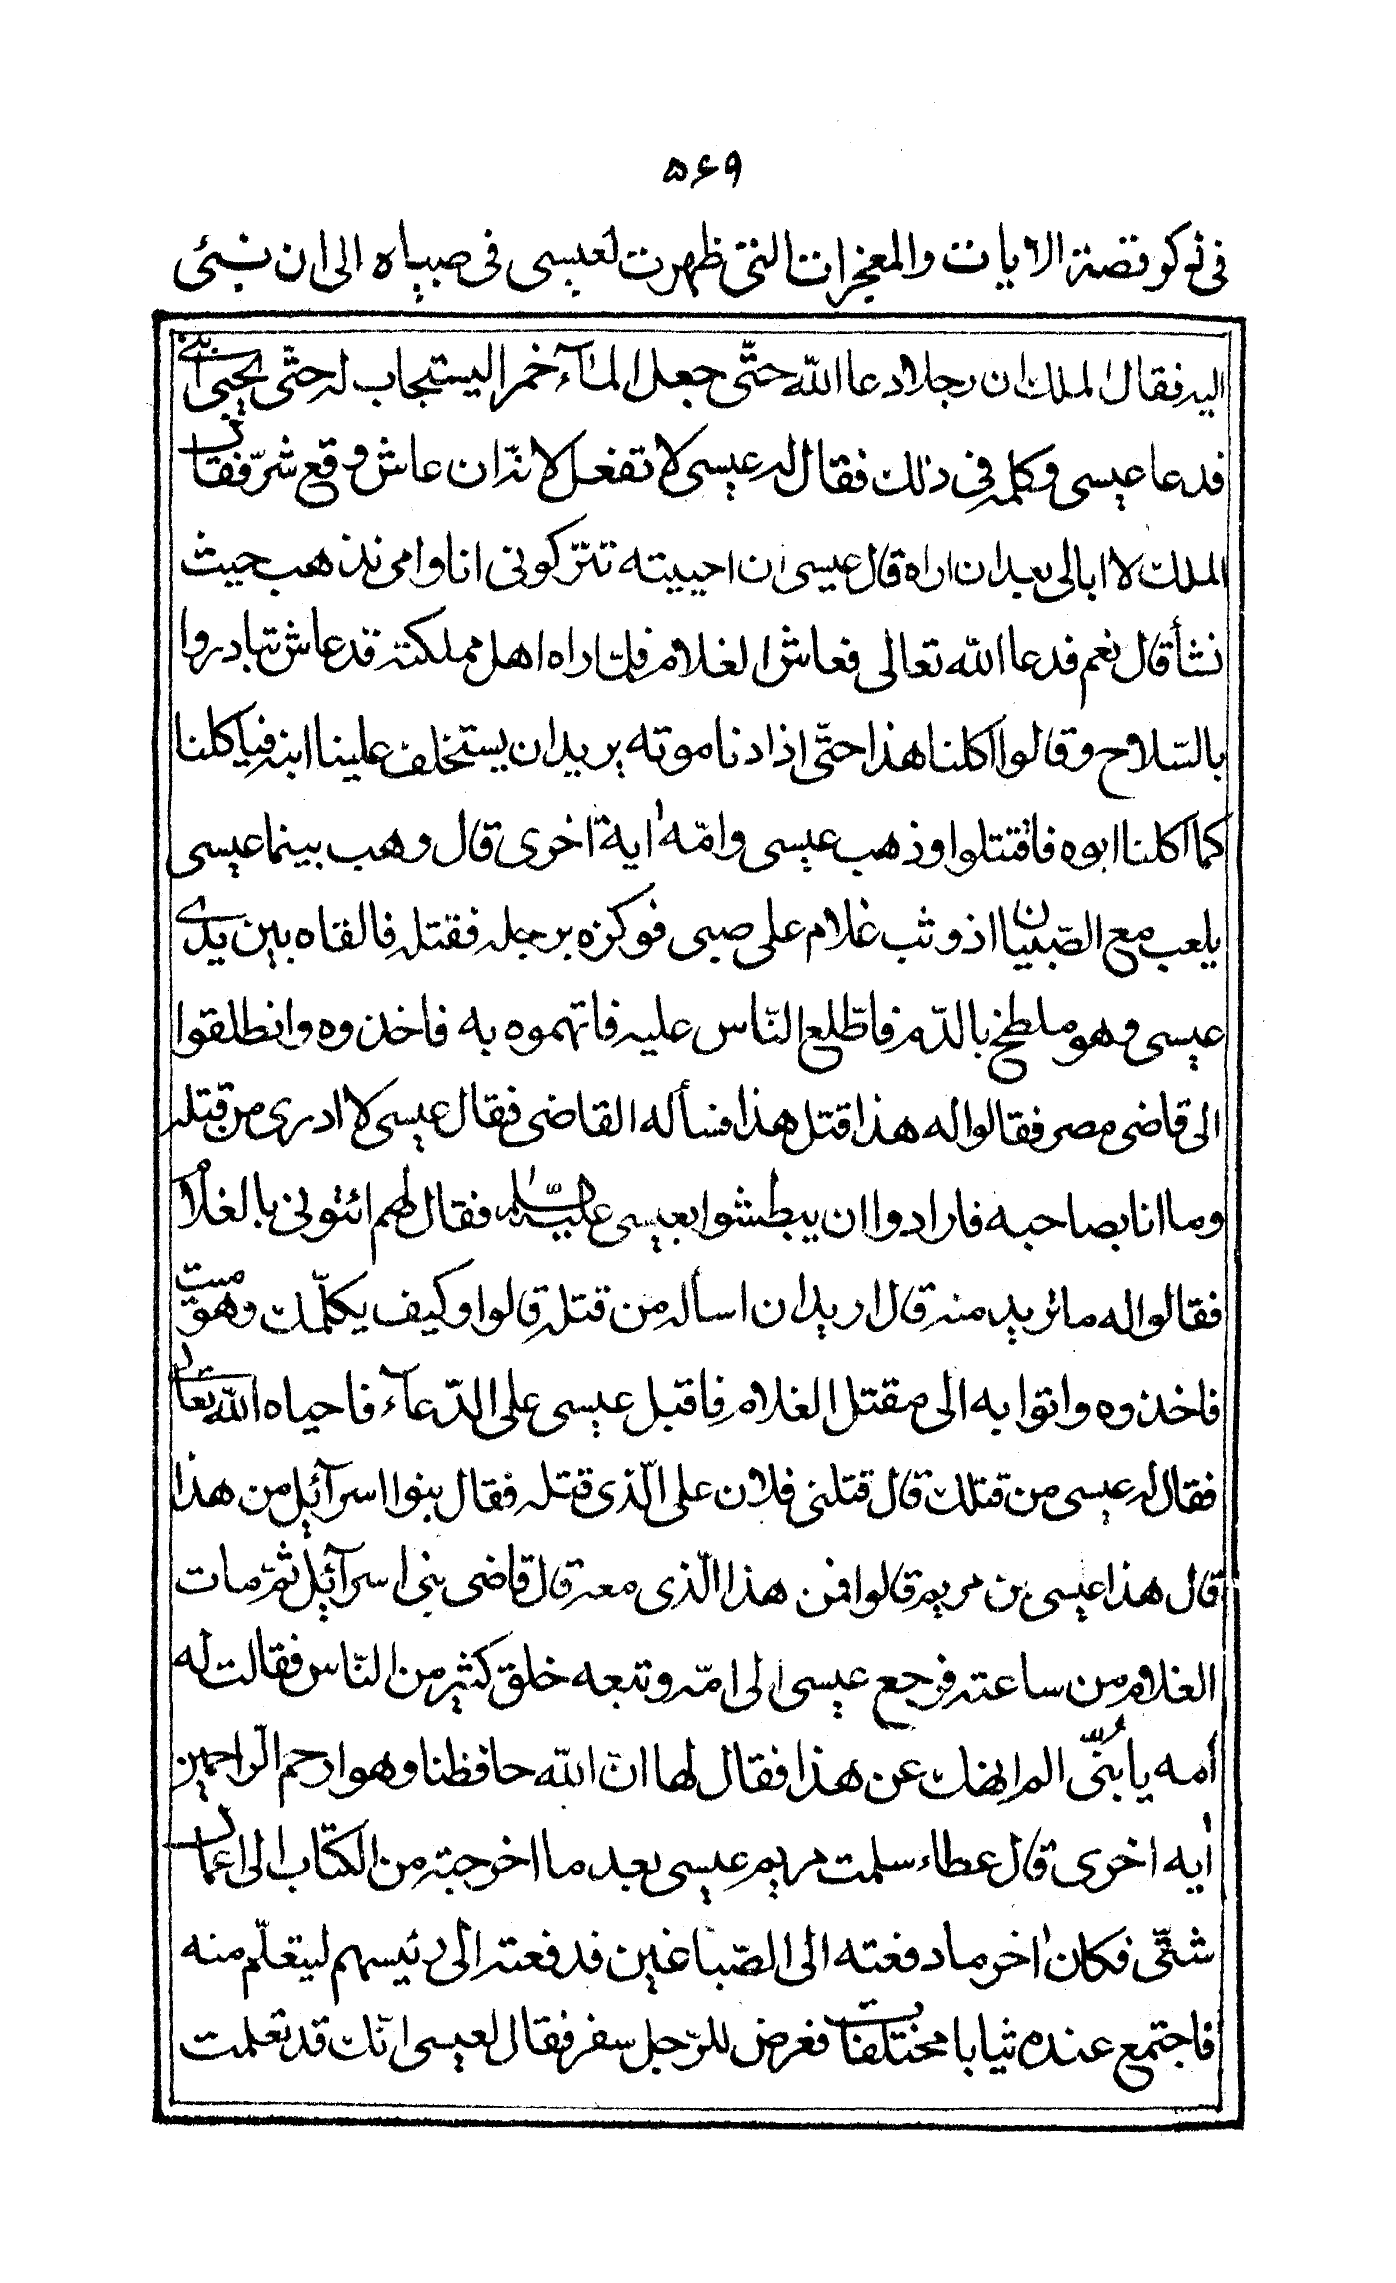 ۵۶۹
فی ذکر قصة الایات والمعجزات التی ظهرت لعیسی فی صباه الی ان نبئی
الیه فقال الملك ان رجلا دعا الله حتّی جعل المآء خمرا لیستجاب له حتّی یحیی ابنی
فدعا عیسی وکلمه فی ذلك فقال له عیسی لا تفعل لانه ان عاش وقع شرّ فقال
الملك لا ابالی بعد ان اراه قال عیسی ان احییته تترکونی انا وامی نذهب حیث
نشأ قال نعم فدعا الله تعالی فعاش الغلام فلمّا راه اهل مملکته قد عاش تبادروا
بالسّلاح وقالوا اکلنا هذا حتّی اذا دنا موته یرید ان یستخلف علینا ابنه فیاکلنا
کما اکلنا ابوه فاقتتلوا وذهب عیسی وامّه ایة اخری قال وهب بینما عیسی
یلعب مع الصّبیان اذ وثب غلام علی صبی فوکزه برجله فقتله فالقاه بین یدی
عیسی وهو ملطخ بالدّم فاطّلع النّاس علیه فاتهموه به فاخذوه وانطلقوا
الی قاضی مصر فقالوا له هذا قتل هذا فسأله القاضی فقال عیسی لا ادری من قتله
وما انا بصاحبه فارادوا ان یبطشوا بعیسی علیه السّلام فقال لهم ائتونی بالغلام
فقالوا له ما ترید منه قال ارید ان اسأله من قتله قالوا وکیف یکلّمك وهو میت
فاخذوه واتوا به الی مقتل الغلام فاقبل عیسی علی الدّعآء فاحیاه الله تعالی
فقال له عیسی من قتلك قال قتلنی فلان علی الّذی قتله فقال بنوا اسرآئیل من هذا
قال هذا عیسی بن مریم قالوا فمن هذا الّذی معه قال قاضی بنی اسرآئیل ثمّ مات
الغلام من ساعته فرجع عیسی الی امّه وتبعه خلق کثیر من النّاس فقالت له
أمه یا بُنّی الم انهك عن هذا فقال لها انّ الله حافظنا وهو ارحم الرّاحمین
أیه اخری قال عطاء سلمت مریم عیسی بعد ما اخرجته من الکتاب الی اعمال
شتّی فکان اخر ما دفعته الی الصّباغین فدفعته الی رئیسهم لیتعلّم منه
فاجتمع عنده ثیابا مختلفات فعرض للرّجل سفر فقال لعیسی انّك قد تعلمت